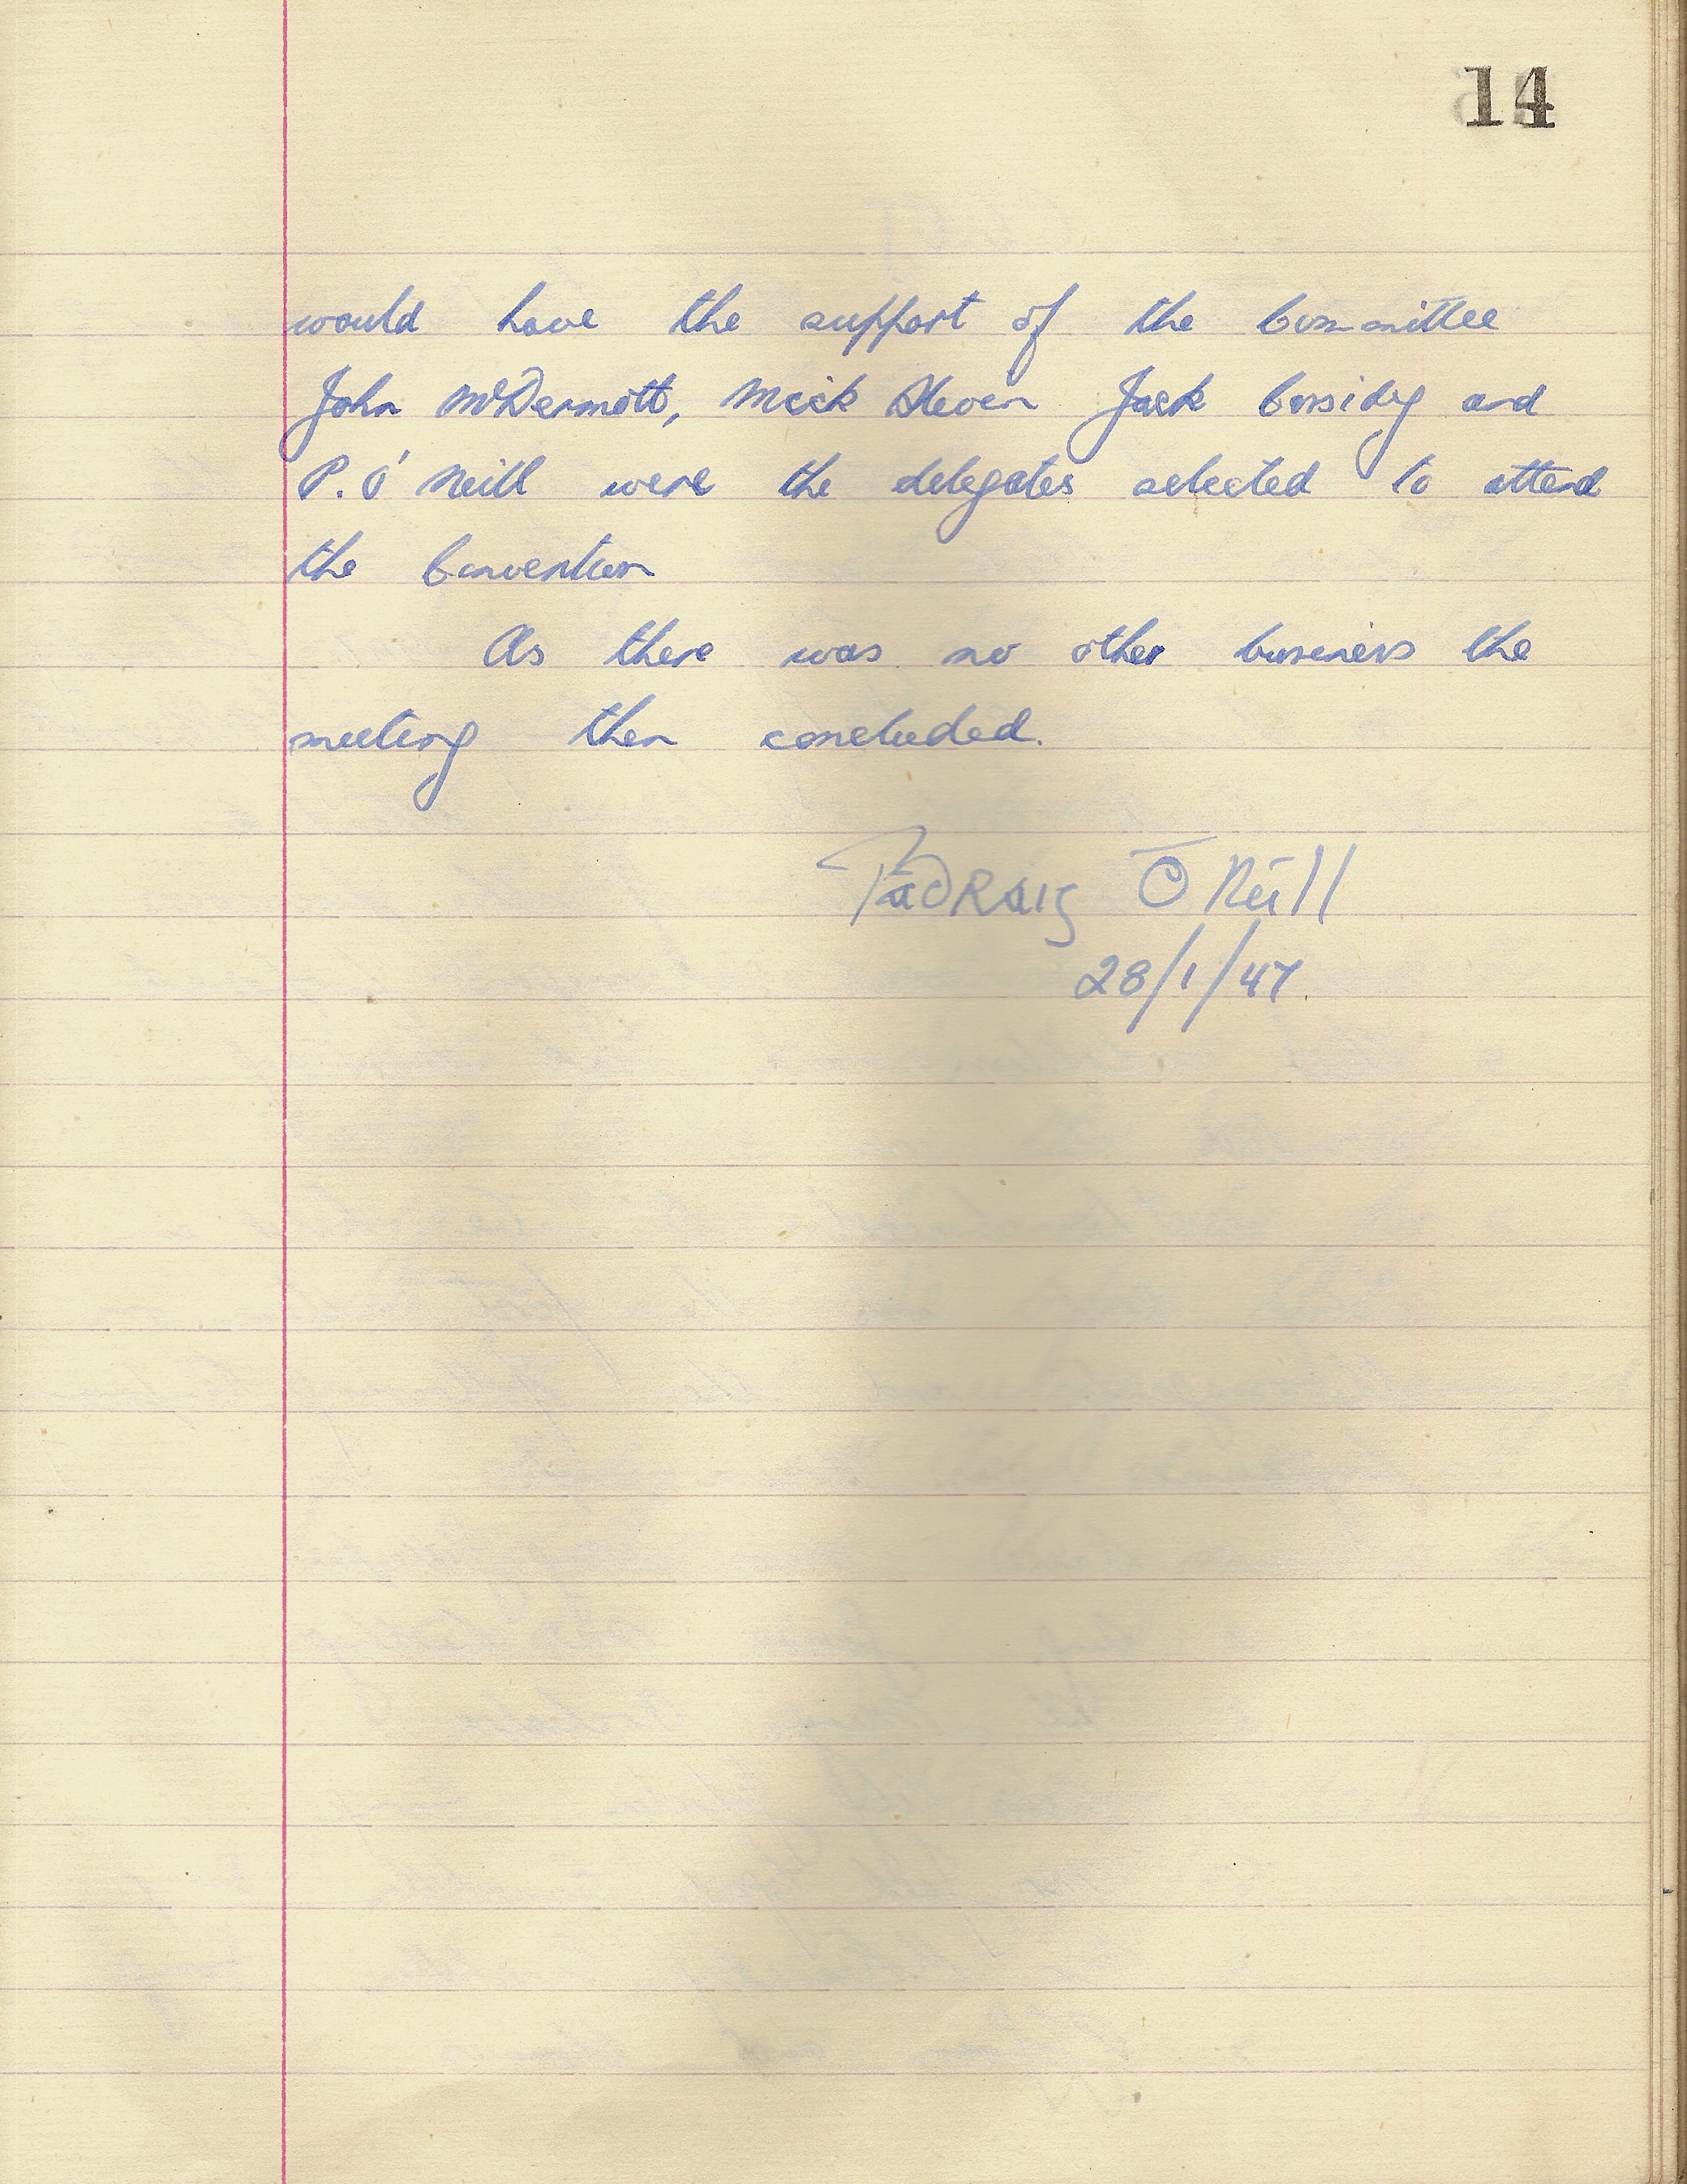 14
would have the support of the Committee
John McDermott, Mick Steven Jack Cassidy and
P. O'Neill were the delegates selected to attend
the Convention
As there was no other business the
meeting then concluded.
Padraig O Neill
28/1/47.